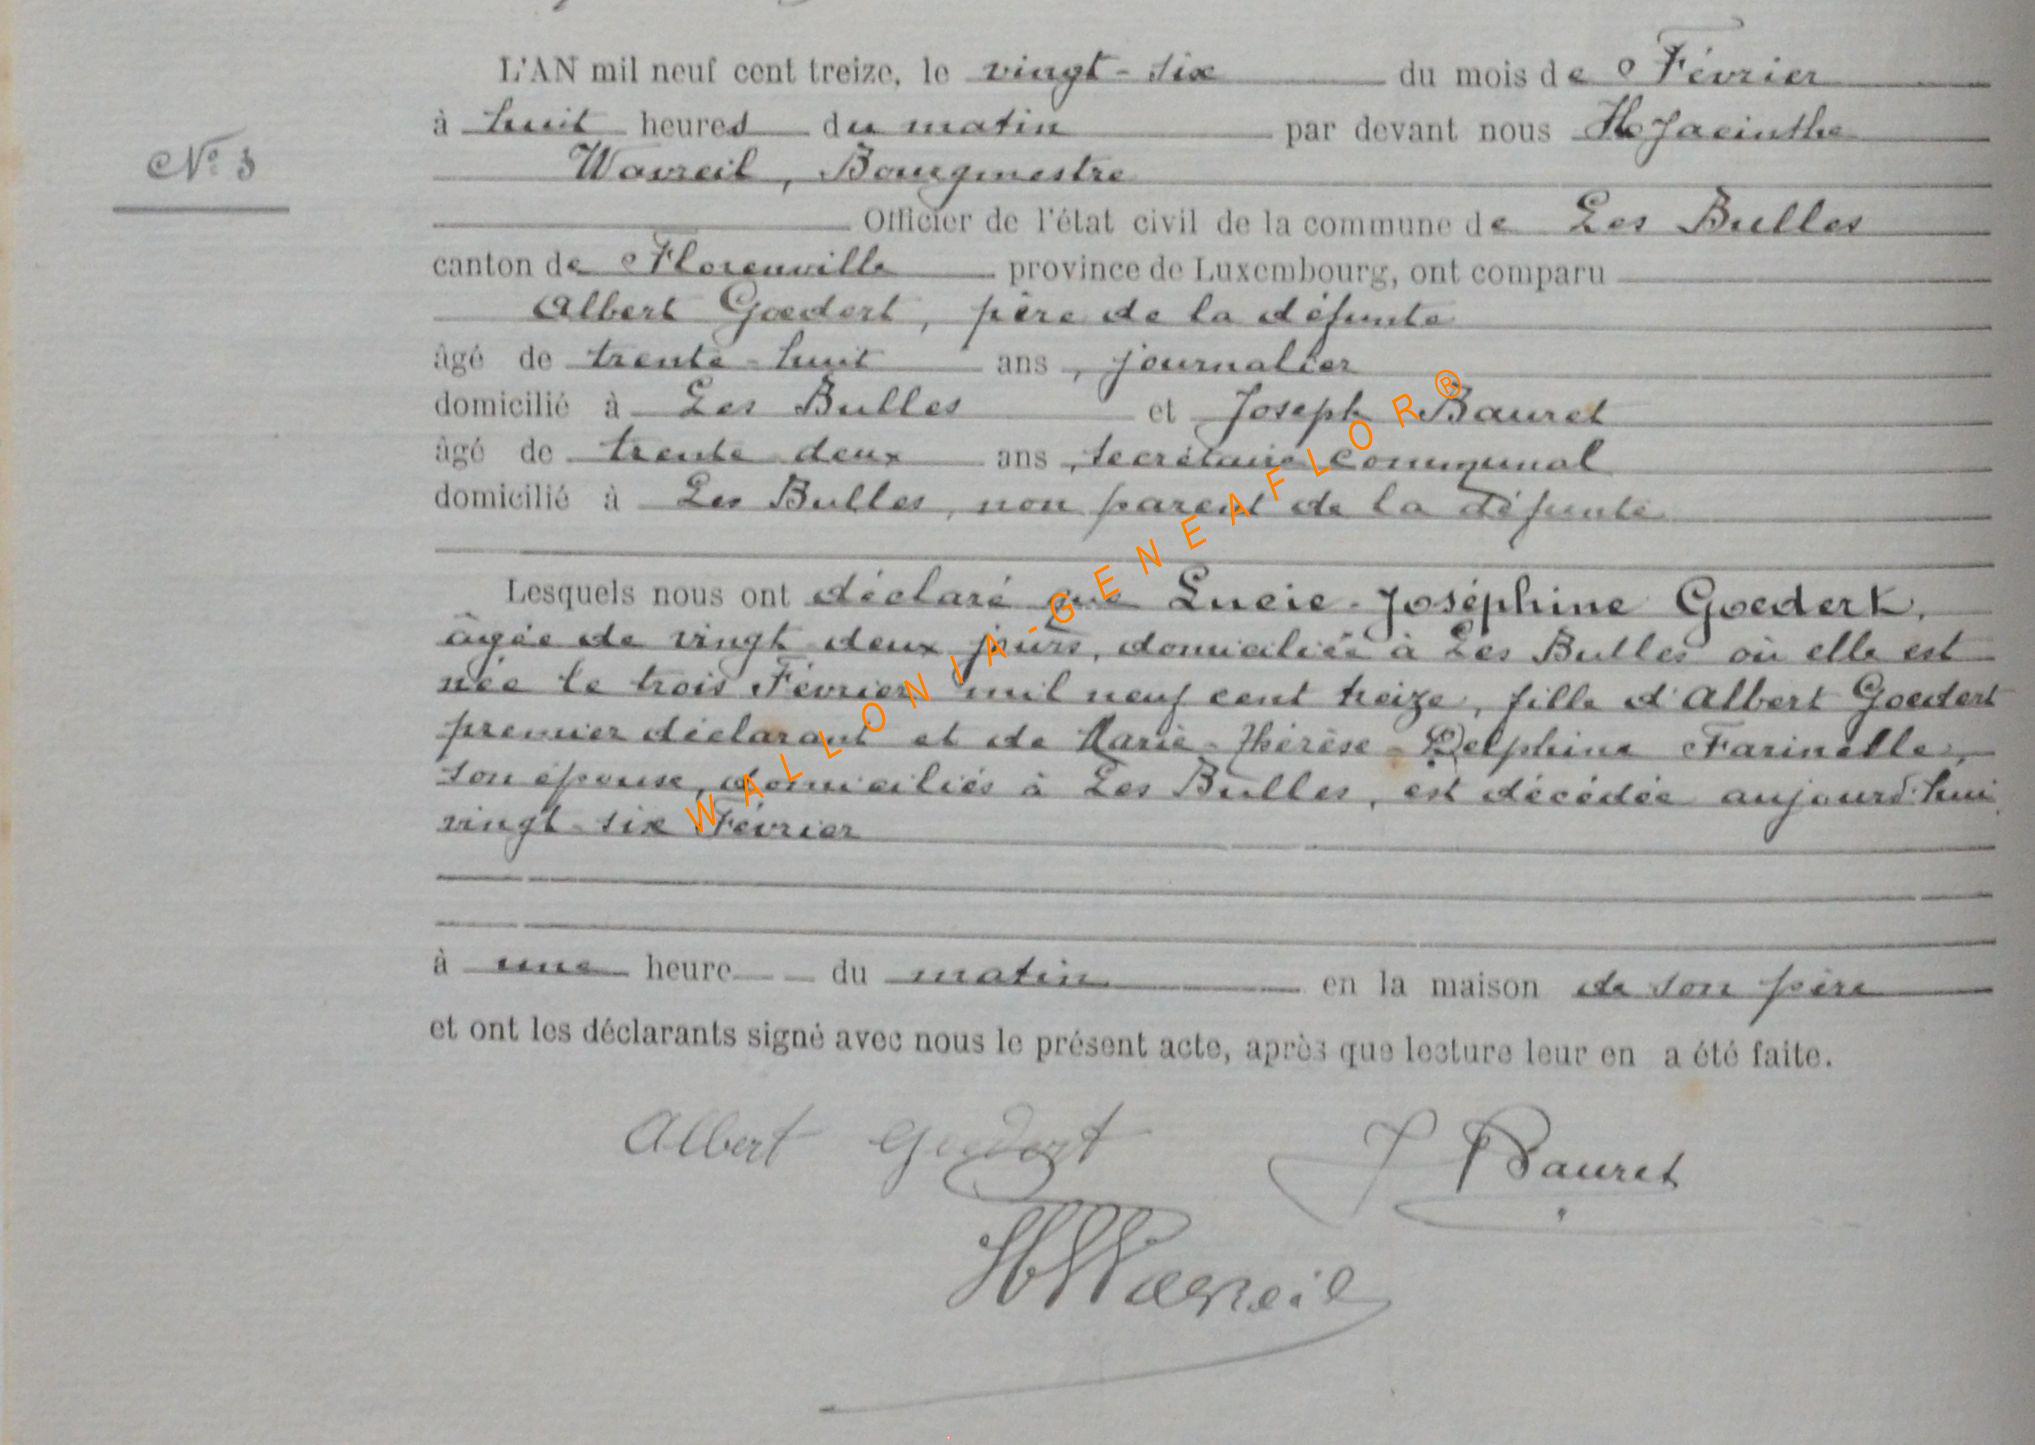 L'AN mil neuf cent treize, le vingt-six du mois de Février
à huit heures du matin par devant nous Hyacinthe
N° 3
Wavreil, Bourgmestre
Officier de l'état civil de la commune de Les Bulles
canton de Florenville province de Luxembourg, ont comparu
Albert Goedert, père de la défunte
âgé de trente-huit ans, journalier
domicilié à Les Bulles et Joseph Bauret
âgé de trente deux ans, secrétaire communal
domicilié à Les Bulles, non parent de la défunte
Lesquels nous ont déclaré que Lucie-Joséphine Goedert,
âgée de vingt-deux jours, domiciliée à Les Bulles où elle est
née le trois Février mil neuf cent treize, fille d'Albert Goedert
premier déclarant et de Marie-Thérèse-Delphine Farinelle,
son épouse, domiciliés à Les Bulles, est décédée aujourd'hui
vingt-six Février
à une heure du matin en la maison de son père
et ont les déclarants signé avec nous le présent acte, après que lecture leur en a été faite.
Albert Goedert J Bauret
H Wavreil
WALLONIA-GENEAFLOR®